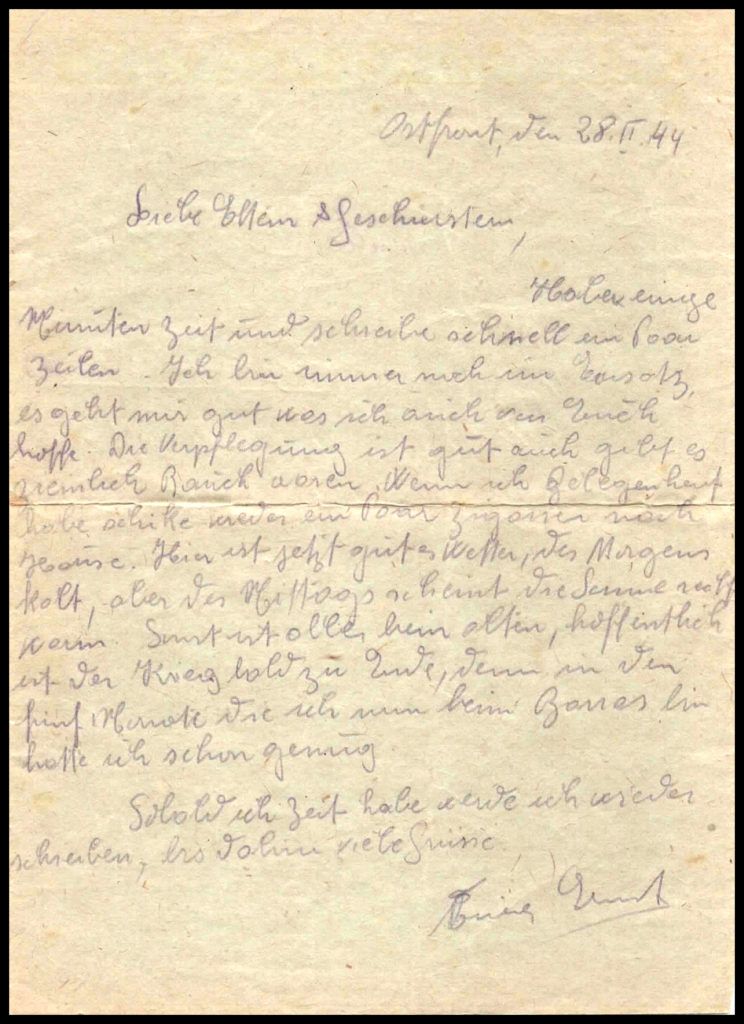 Ostfront, den 28.II.44
Liebe Eltern & Geschwistern,
Habe einige
Minuten Zeit und schreibe schnell ein Paar
Zeilen. Ich bin immer noch im Einsatz,
es geht mir gut was ich auch von Euch
hoffe. Die Verpflegung ist gut auch gibt es
ziemlich Rauch waren. Wenn ich Gelegenheit
habe schike wieder ein Paar Zigarren nach
Hause. Hier ist jetzt gutes Wetter, des Morgens
kalt, aber des Mittags scheint die Sonne recht
warm. Sonst ist alles beim alten, hoffentlich
ist der Krieg bald zu Ende, denn in den
fünf Monate die ich nun beim Barras bin
hatte ich schon genug.
Sobald ich Zeit habe werde ich wieder
schreiben, bis dahin viele Grüsse.
Euer Ernst